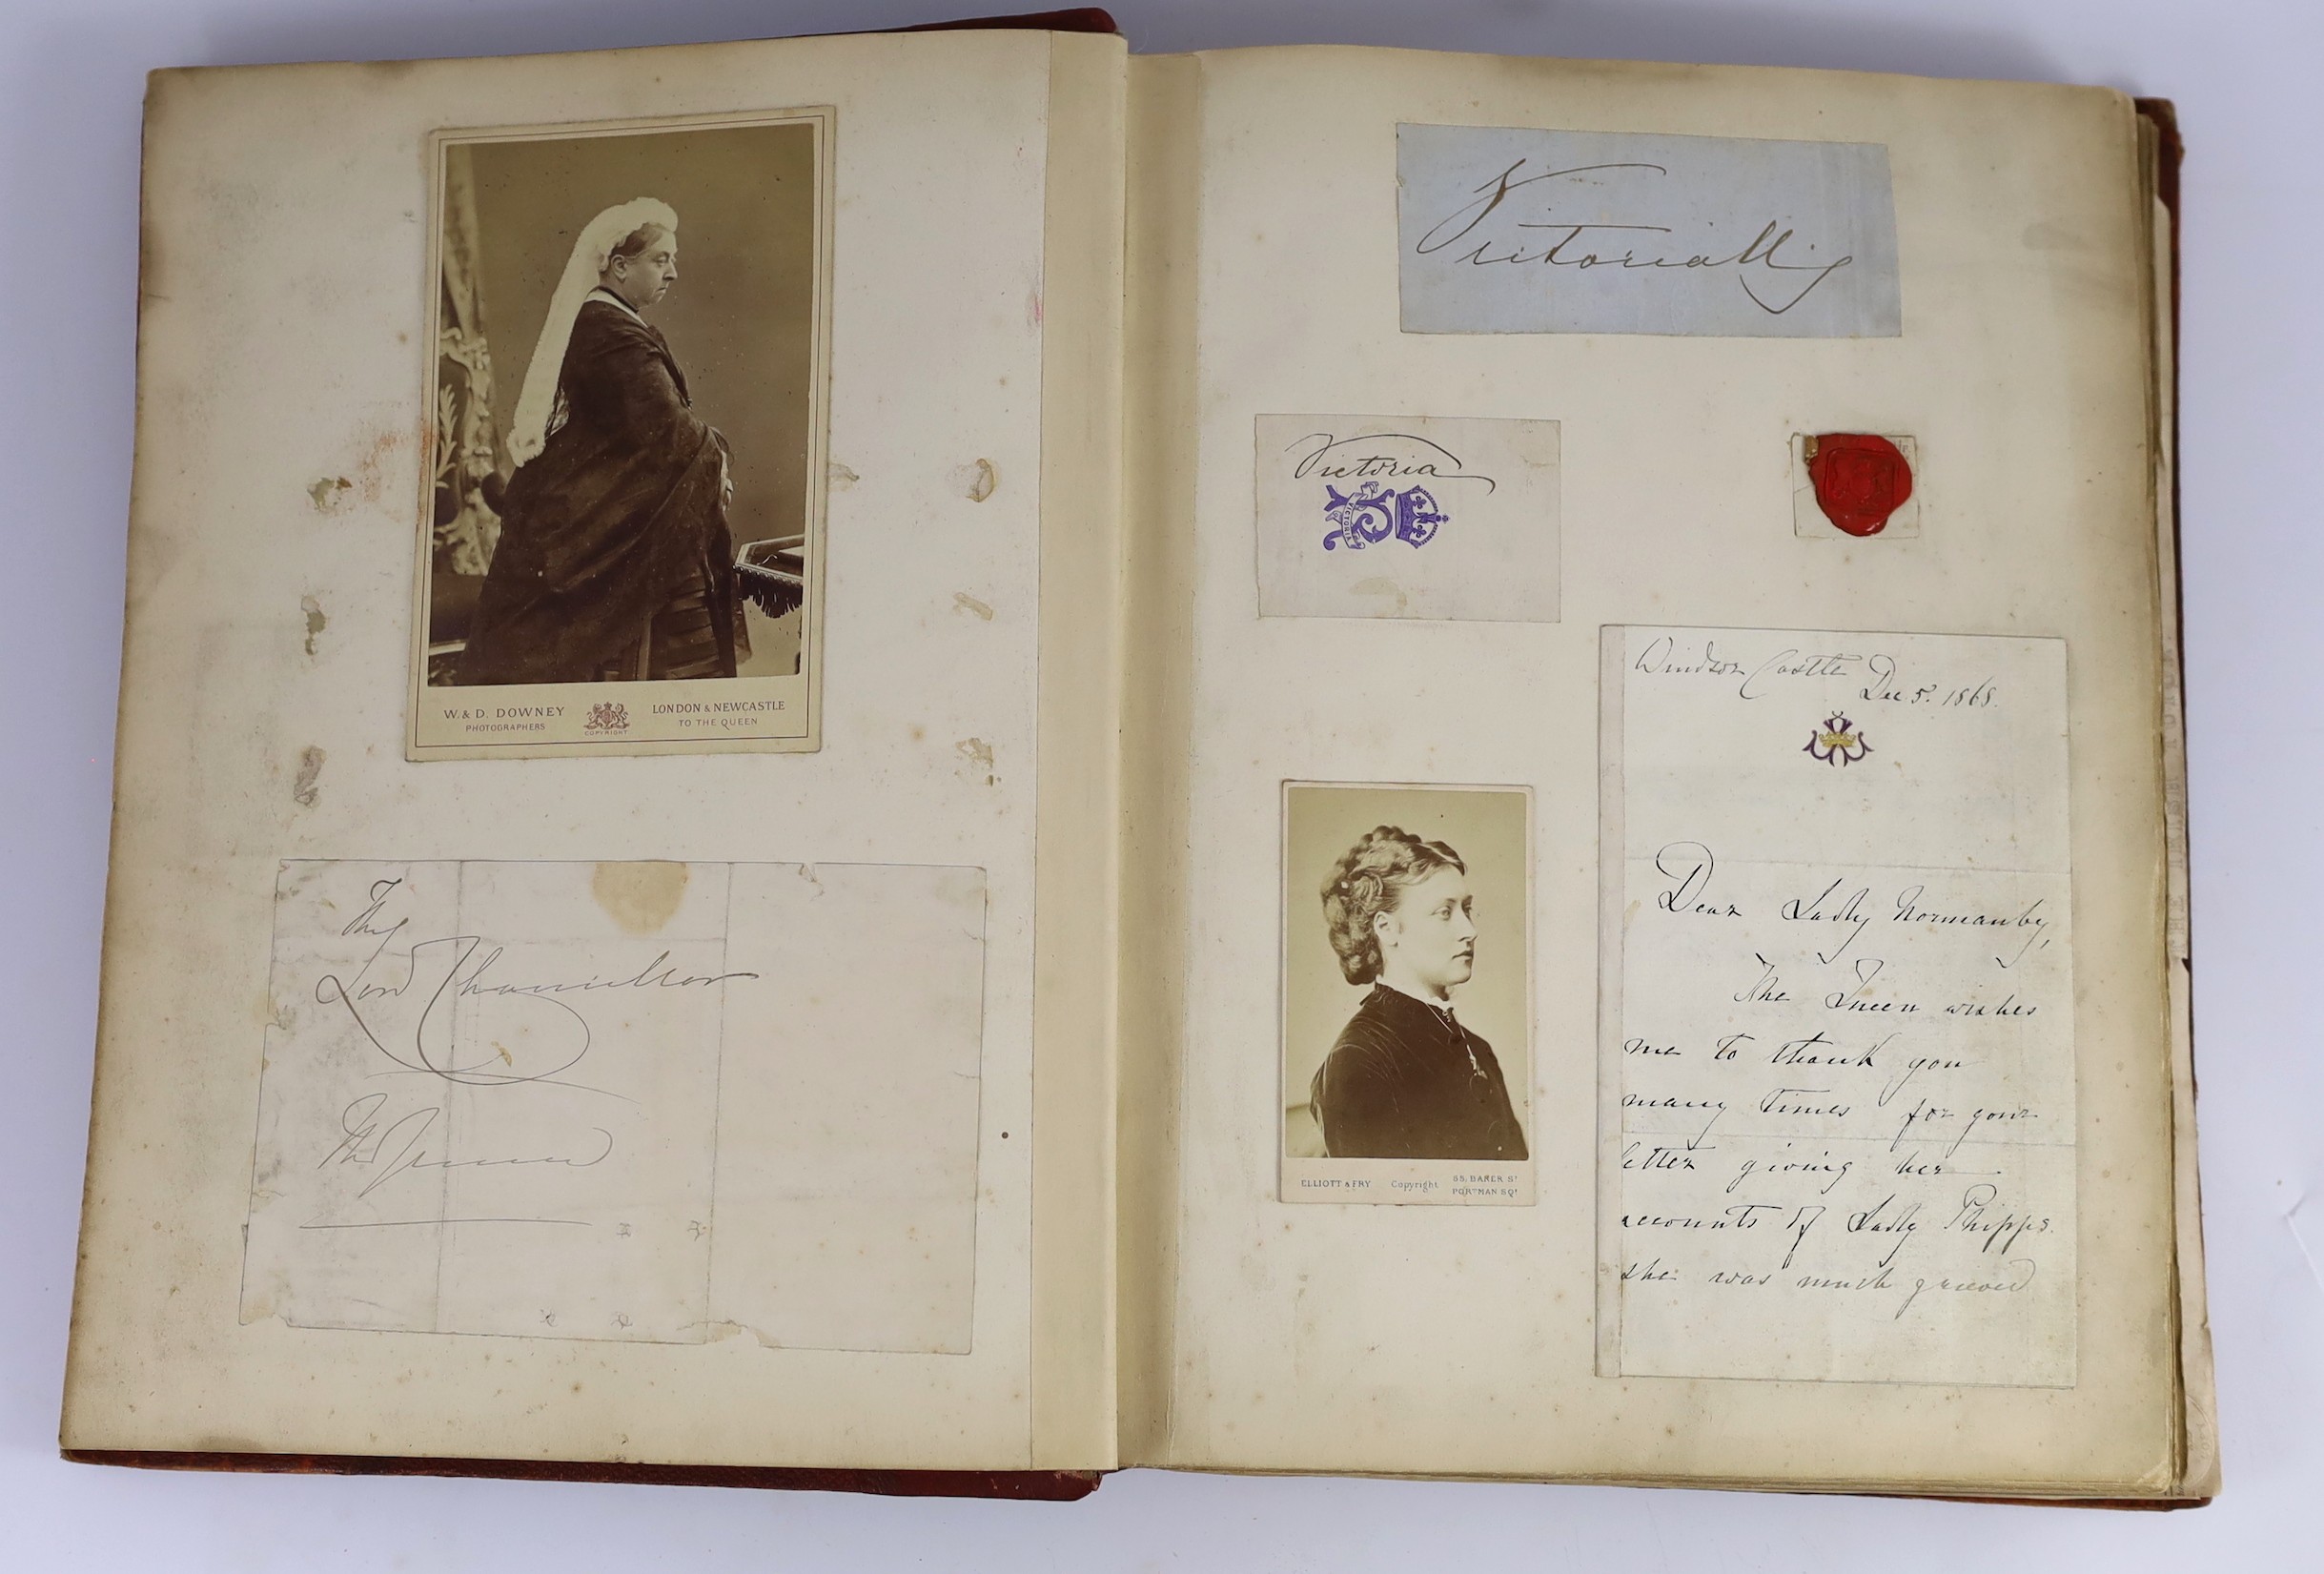 W. & D. DOWNEY
PHOTOGRAPHERS
COPYRIGHT
LONDON & NEWCASTLE
TO THE QUEEN
The
Lord Chancellor
The Queen
Victoria
Victoria
VICTORIA
ELLIOTT & FRY
Copyright
55, BAKER ST
PORTMAN SQE
Windsor Castle
Dec 5. 1868.
Dear Lady Normanby,
The Queen wishes
me to thank you
many times for your
letter giving her
accounts of Lady Phipps.
she was much grieved